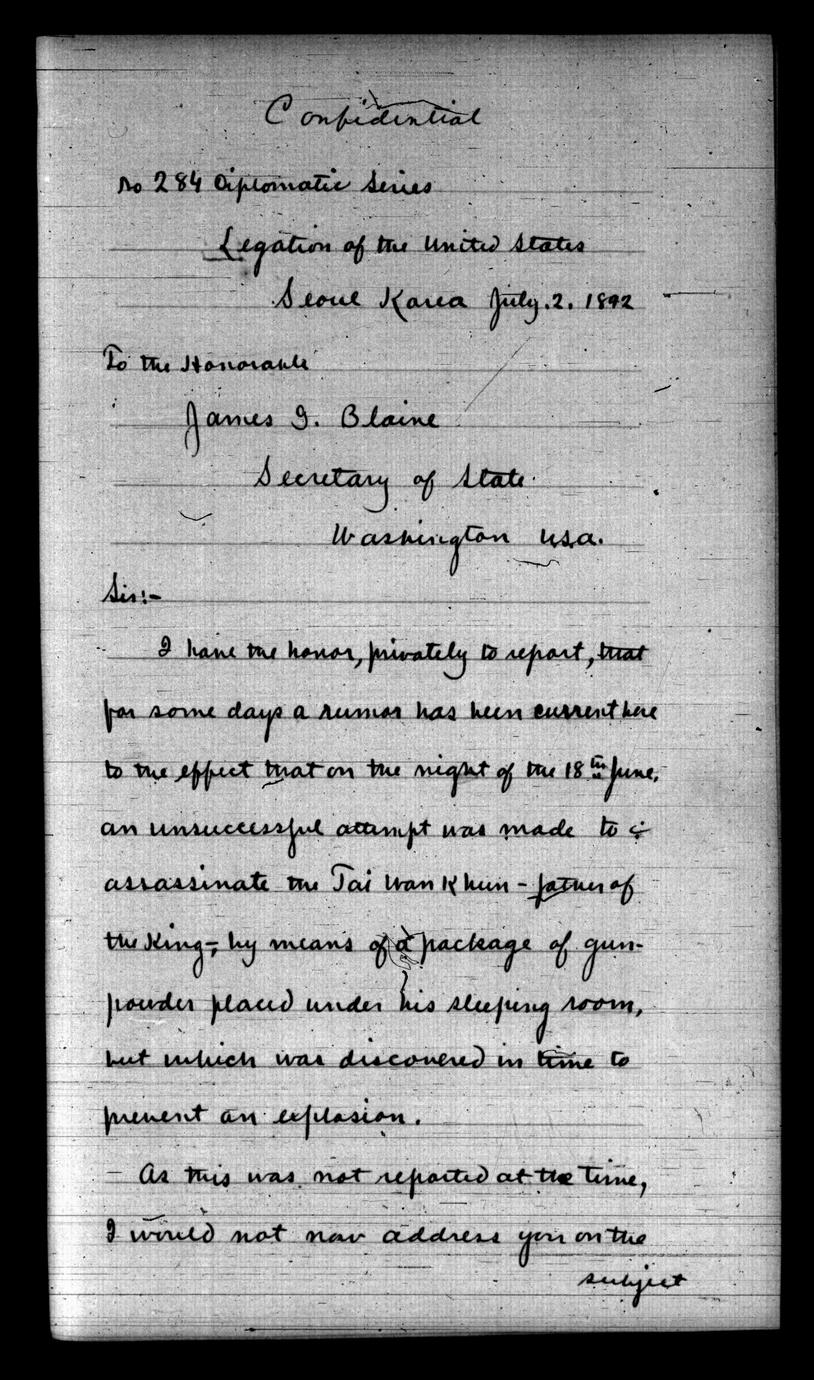 Confidential
No 284 Diplomatic Series
Legation of the United States
Seoul Korea July. 2. 1892
To the Honorable
James G. Blaine
Secretary of State
Washington U.S.A.
Sir:-
I have the honor, privately to report, that
for some days a rumor has been current here
to the effect that on the night of the 18th June,
an unsuccessful attempt was made to
assassinate the Tai Wan Khun - father of
the King -, by means of a package of gun-
powder placed under his sleeping room,
but which was discovered in time to
prevent an explosion.
As this was not reported at the time,
I would not now address you on the
subject